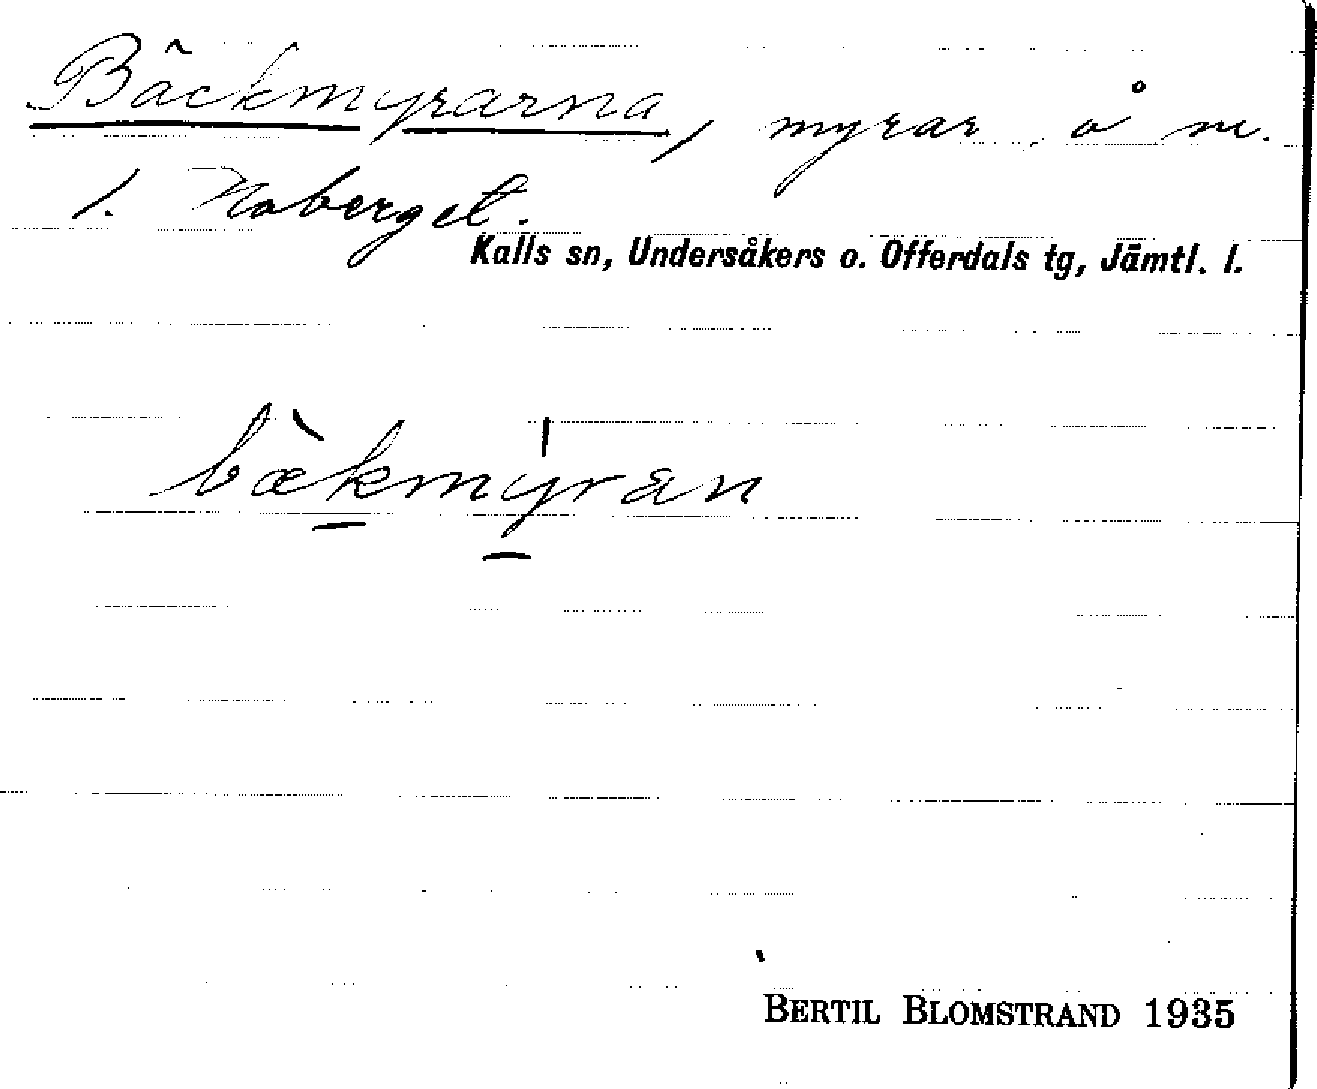 Bäckmyrarna, myrar å m.
1. Noberget.
Kalls sn, Undersåkers o. Offerdals tg, Jämtl. l.
bæ̀kmýran
BERTIL BLOMSTRAND 1935